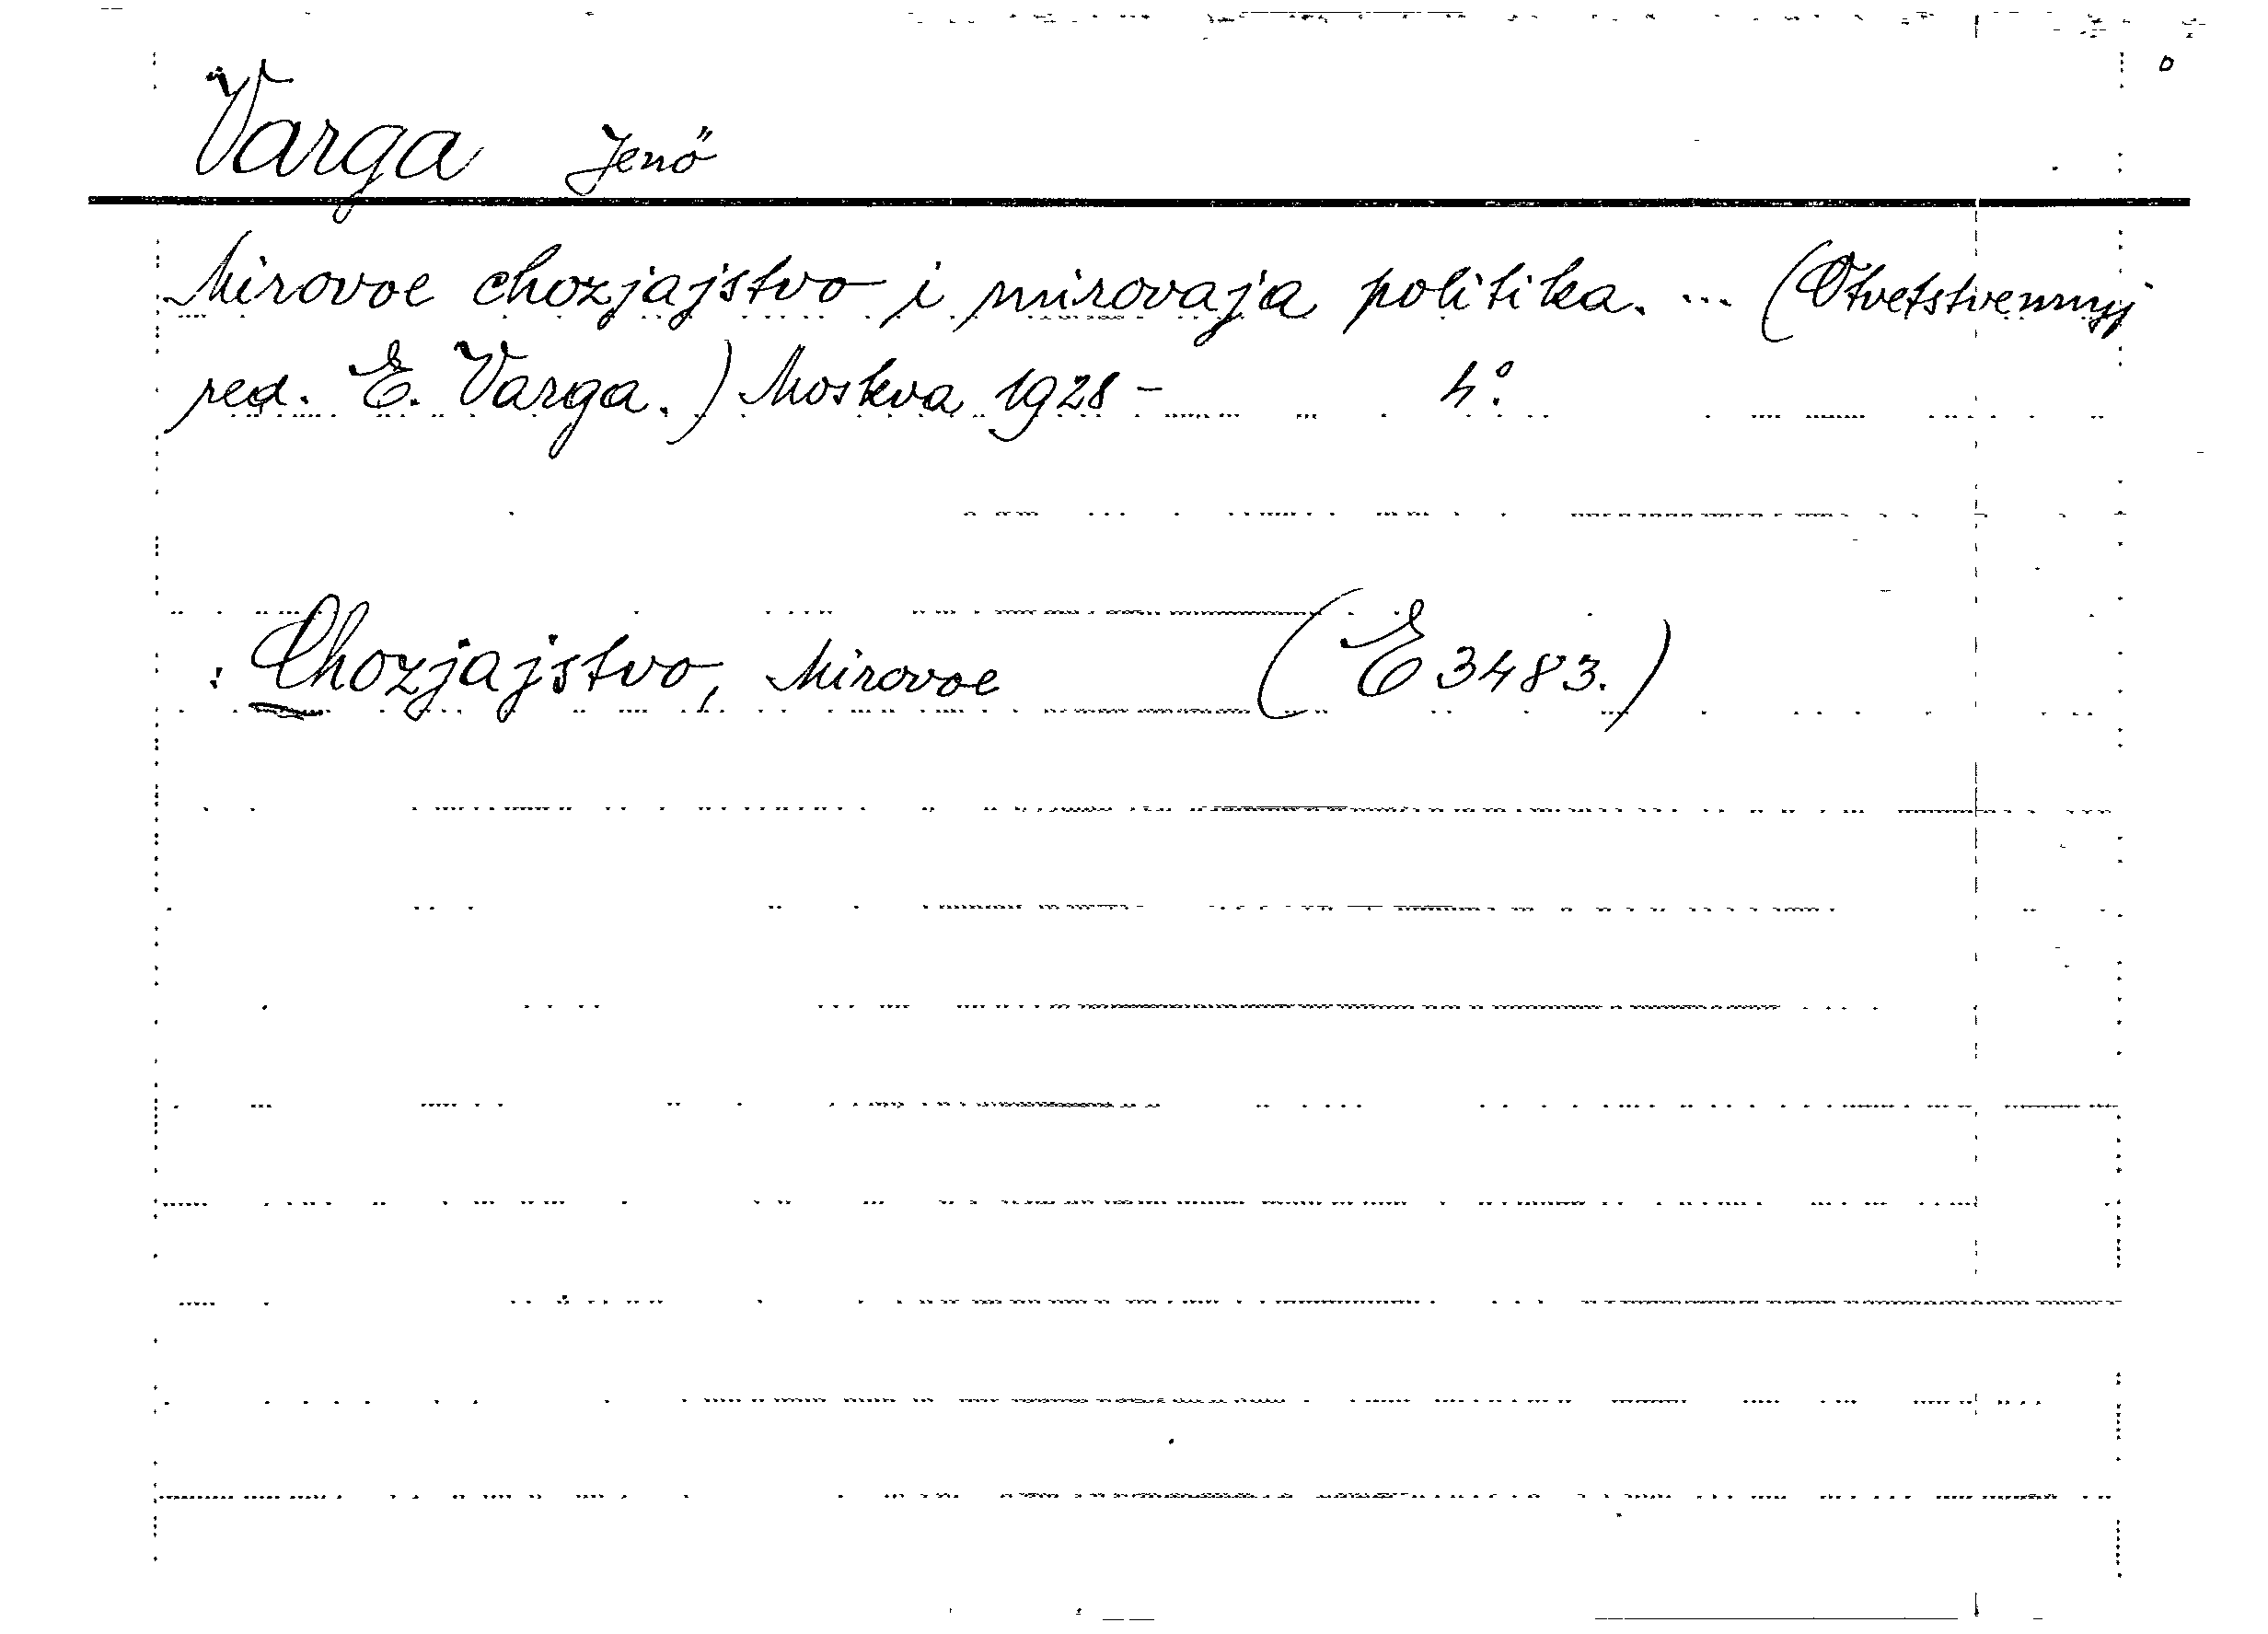 Varga Jenő
Mirovoe chozjajstvo i mirovaja politika. ... (Otvetstvennyj
red. E. Varga.) Moskva 1928- 4°.
: Chozjajstvo, Mirovoe (E 3483.)